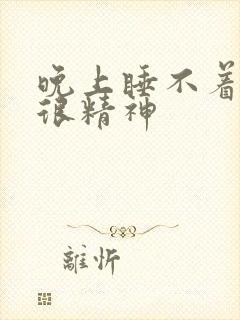 晚上睡不着
很精神
離忻